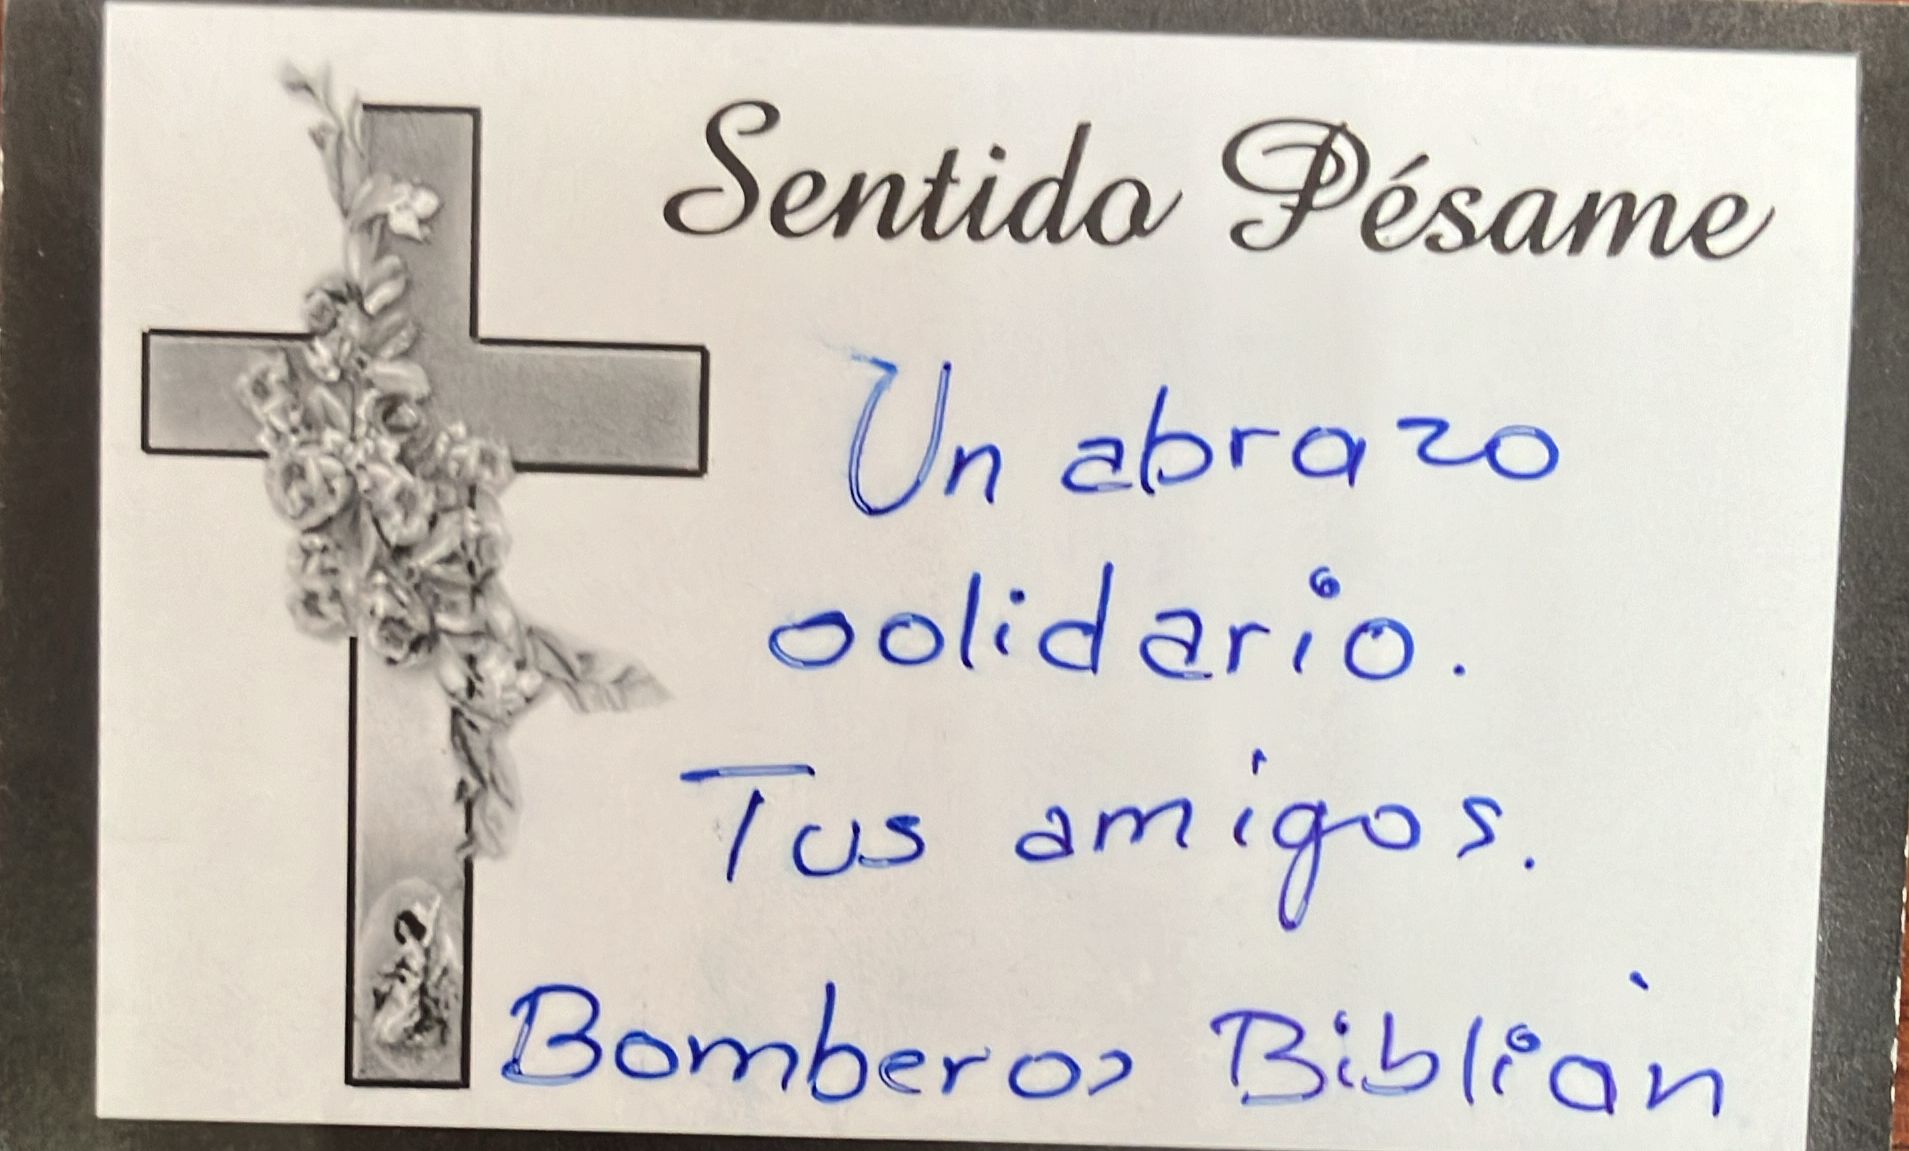 Sentido Pésame
Un abrazo
solidario.
Tus amigos.
Bomberos Biblián